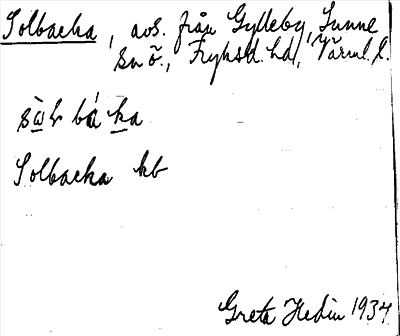 Solbacka, avs. från Gylleby, Sunne
sn ö., Fryksd. hd, Värml. l.
Solbacka kb
Greta Hedin 1934